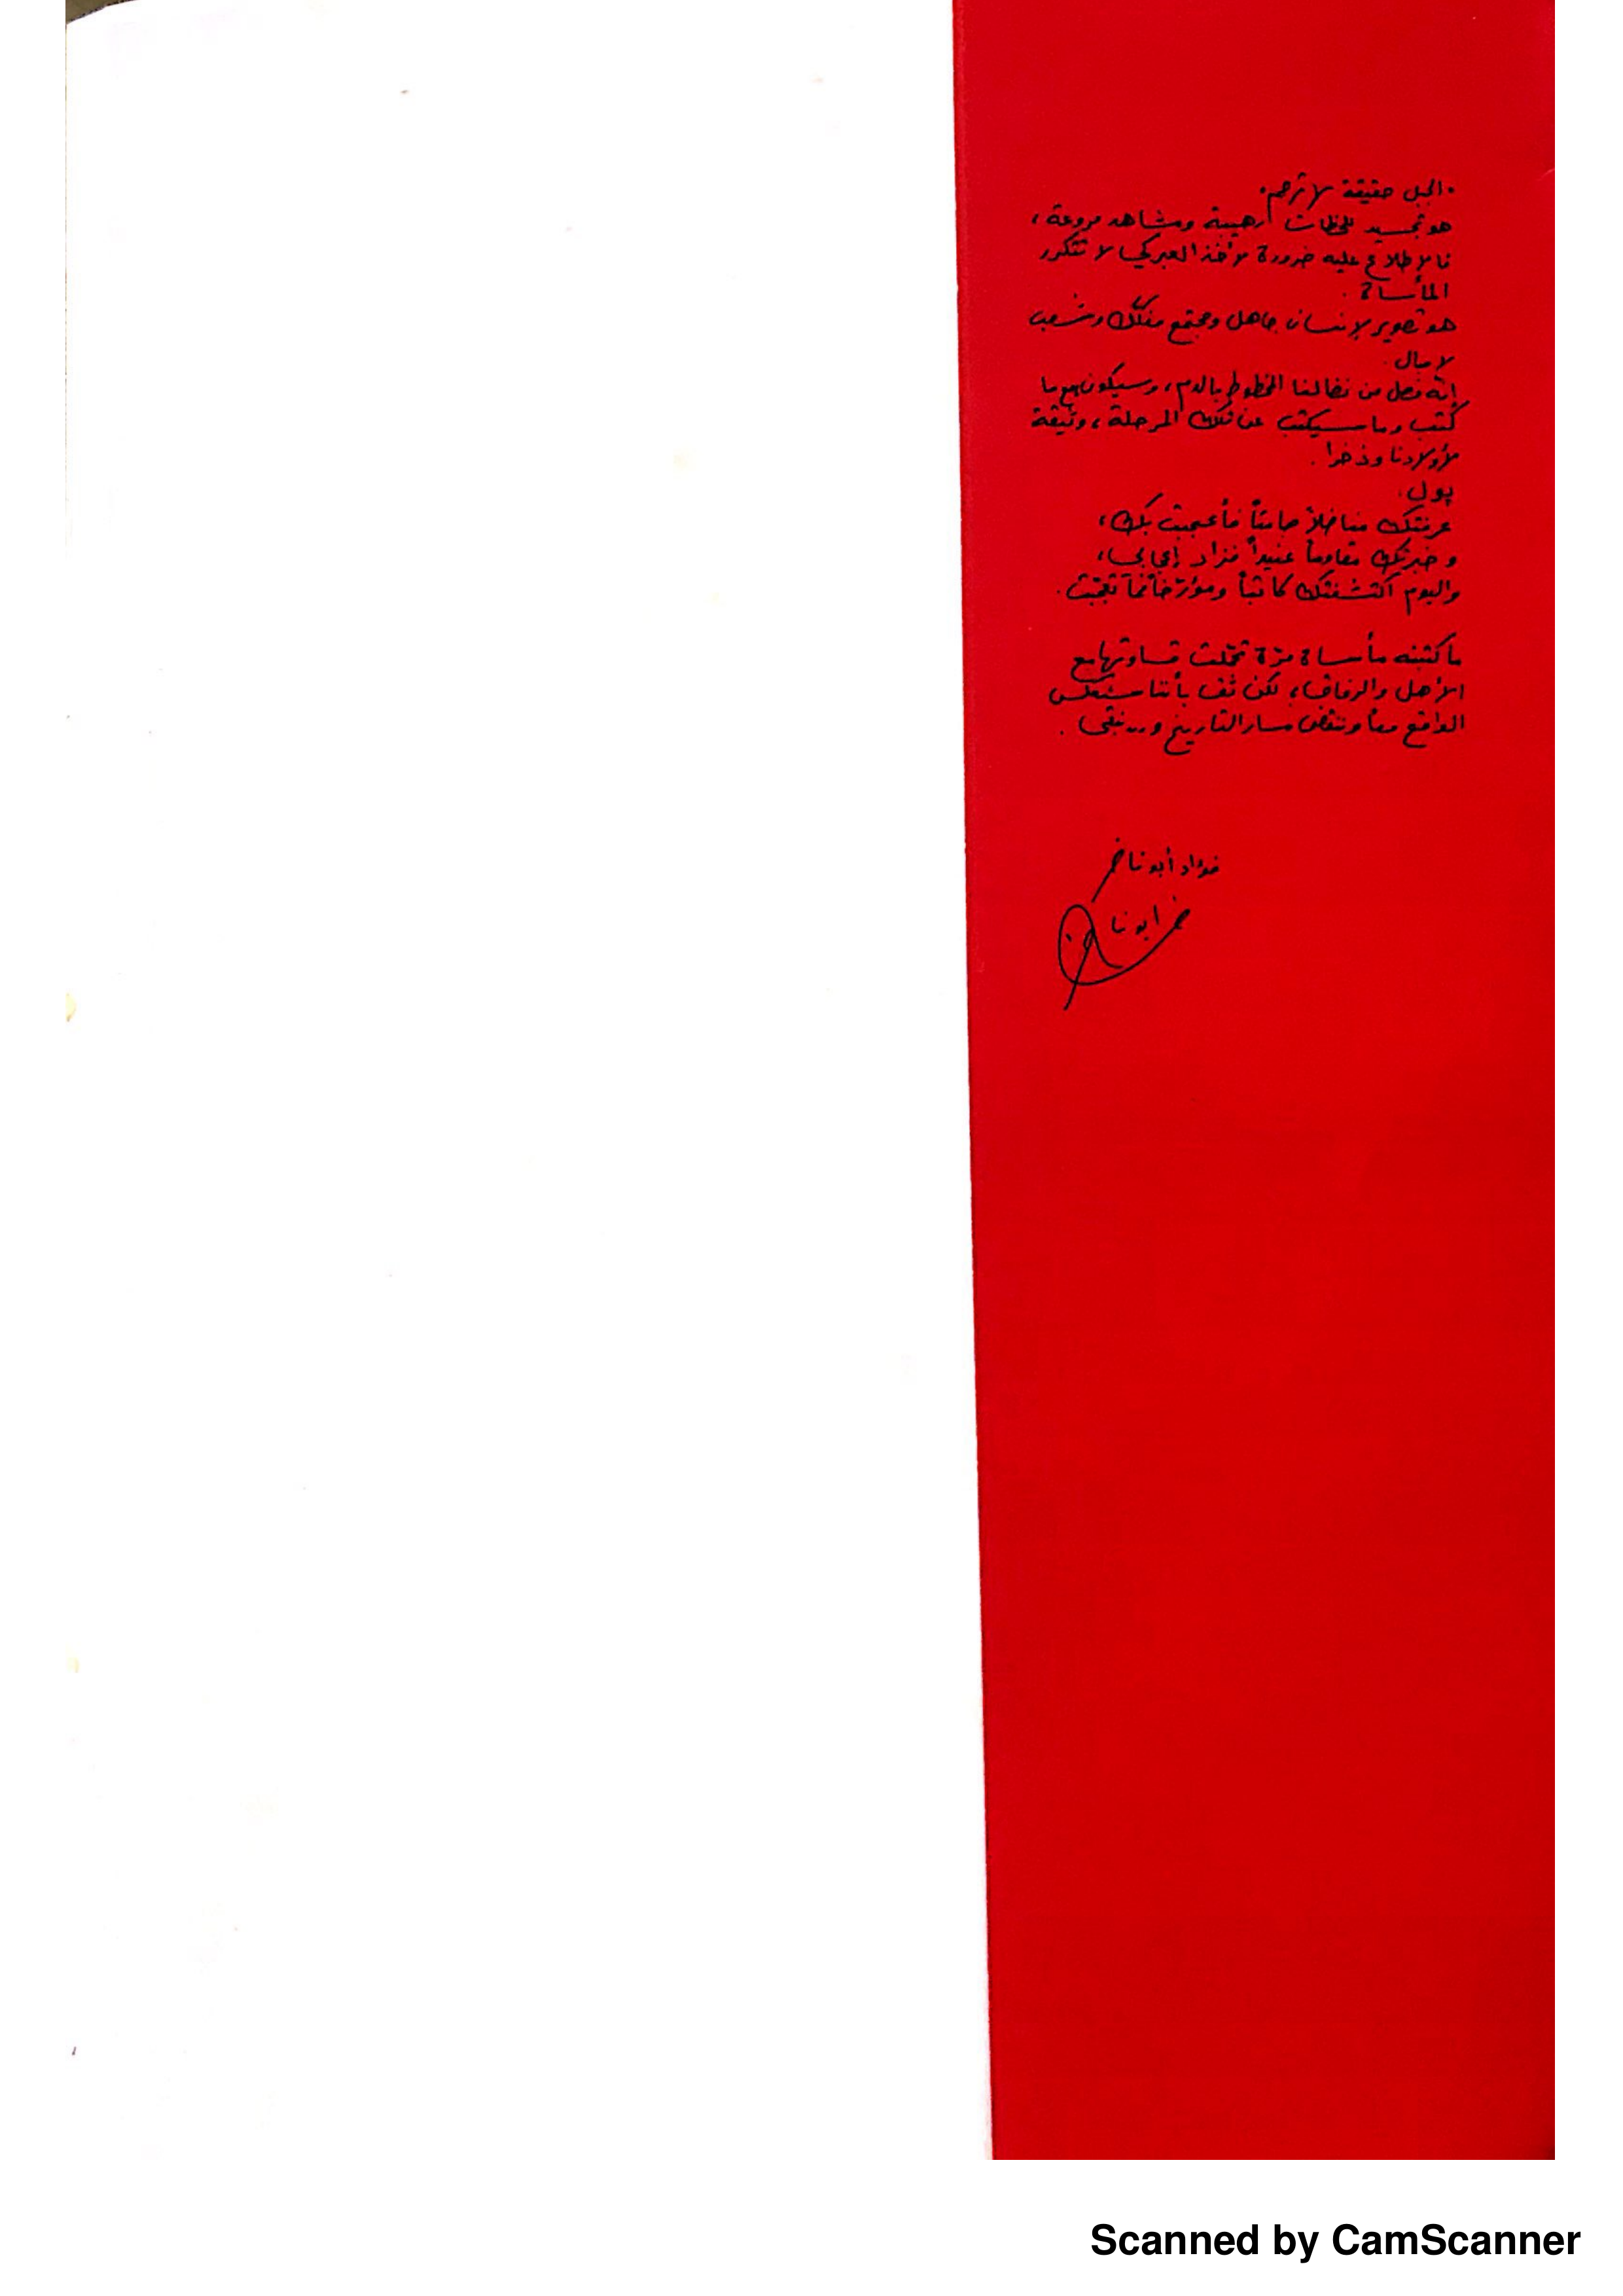 «الجبل حقيقة لا ترحم»
هو تجسيد للحظات رهيبة ومشاهد مروعة،
فالإطلاع عليه ضرورة لأخذ العبر كي لا تتكرر
المأساة.
هو تصوير لإنسان جاهل ومجتمع مفكّك وشعب
لا مبال.
إنّه فصل من نضالنا المخطوط بالدم، وسيكون مع ما
كُتب وما سيكتب عن تلك المرحلة، وثيقة
لأولادنا وذخرا.
پول،
عرفتك مناضلاً صامتاً فأعجبت بك،
وخبرتك مقاوماً عنيداً فزاد إعجابي،
واليوم اكتشفتك كاتباً ومؤرّخاً فما تعجّبت.
ما كتبته مأساة مرّة تحمّلت قساوتها مع
الأهل والرفاق، لكن ثق بأننا سنعكس
الواقع معاً وننقض مسار التاريخ و.. نبقى.
فؤاد أبو ناضر
Scanned by CamScanner